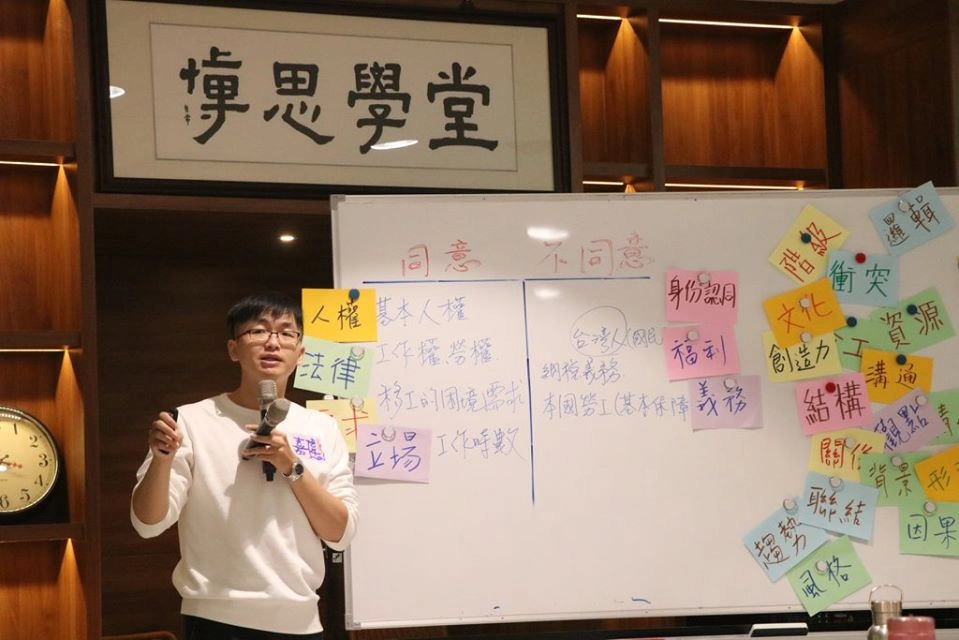 博思學堂
同意
不同意
人權
基本人權
法律
工作權 勞權
移工的困境需求
立場
工作時數
台灣人(國民
納稅義務
本國勞工(基本保障
身份認同
福利
義務
階級
邏輯
衝突
文化
資源
創造力
溝通
結構
觀點
關係
背景
聯結
因果
趨勢
風格